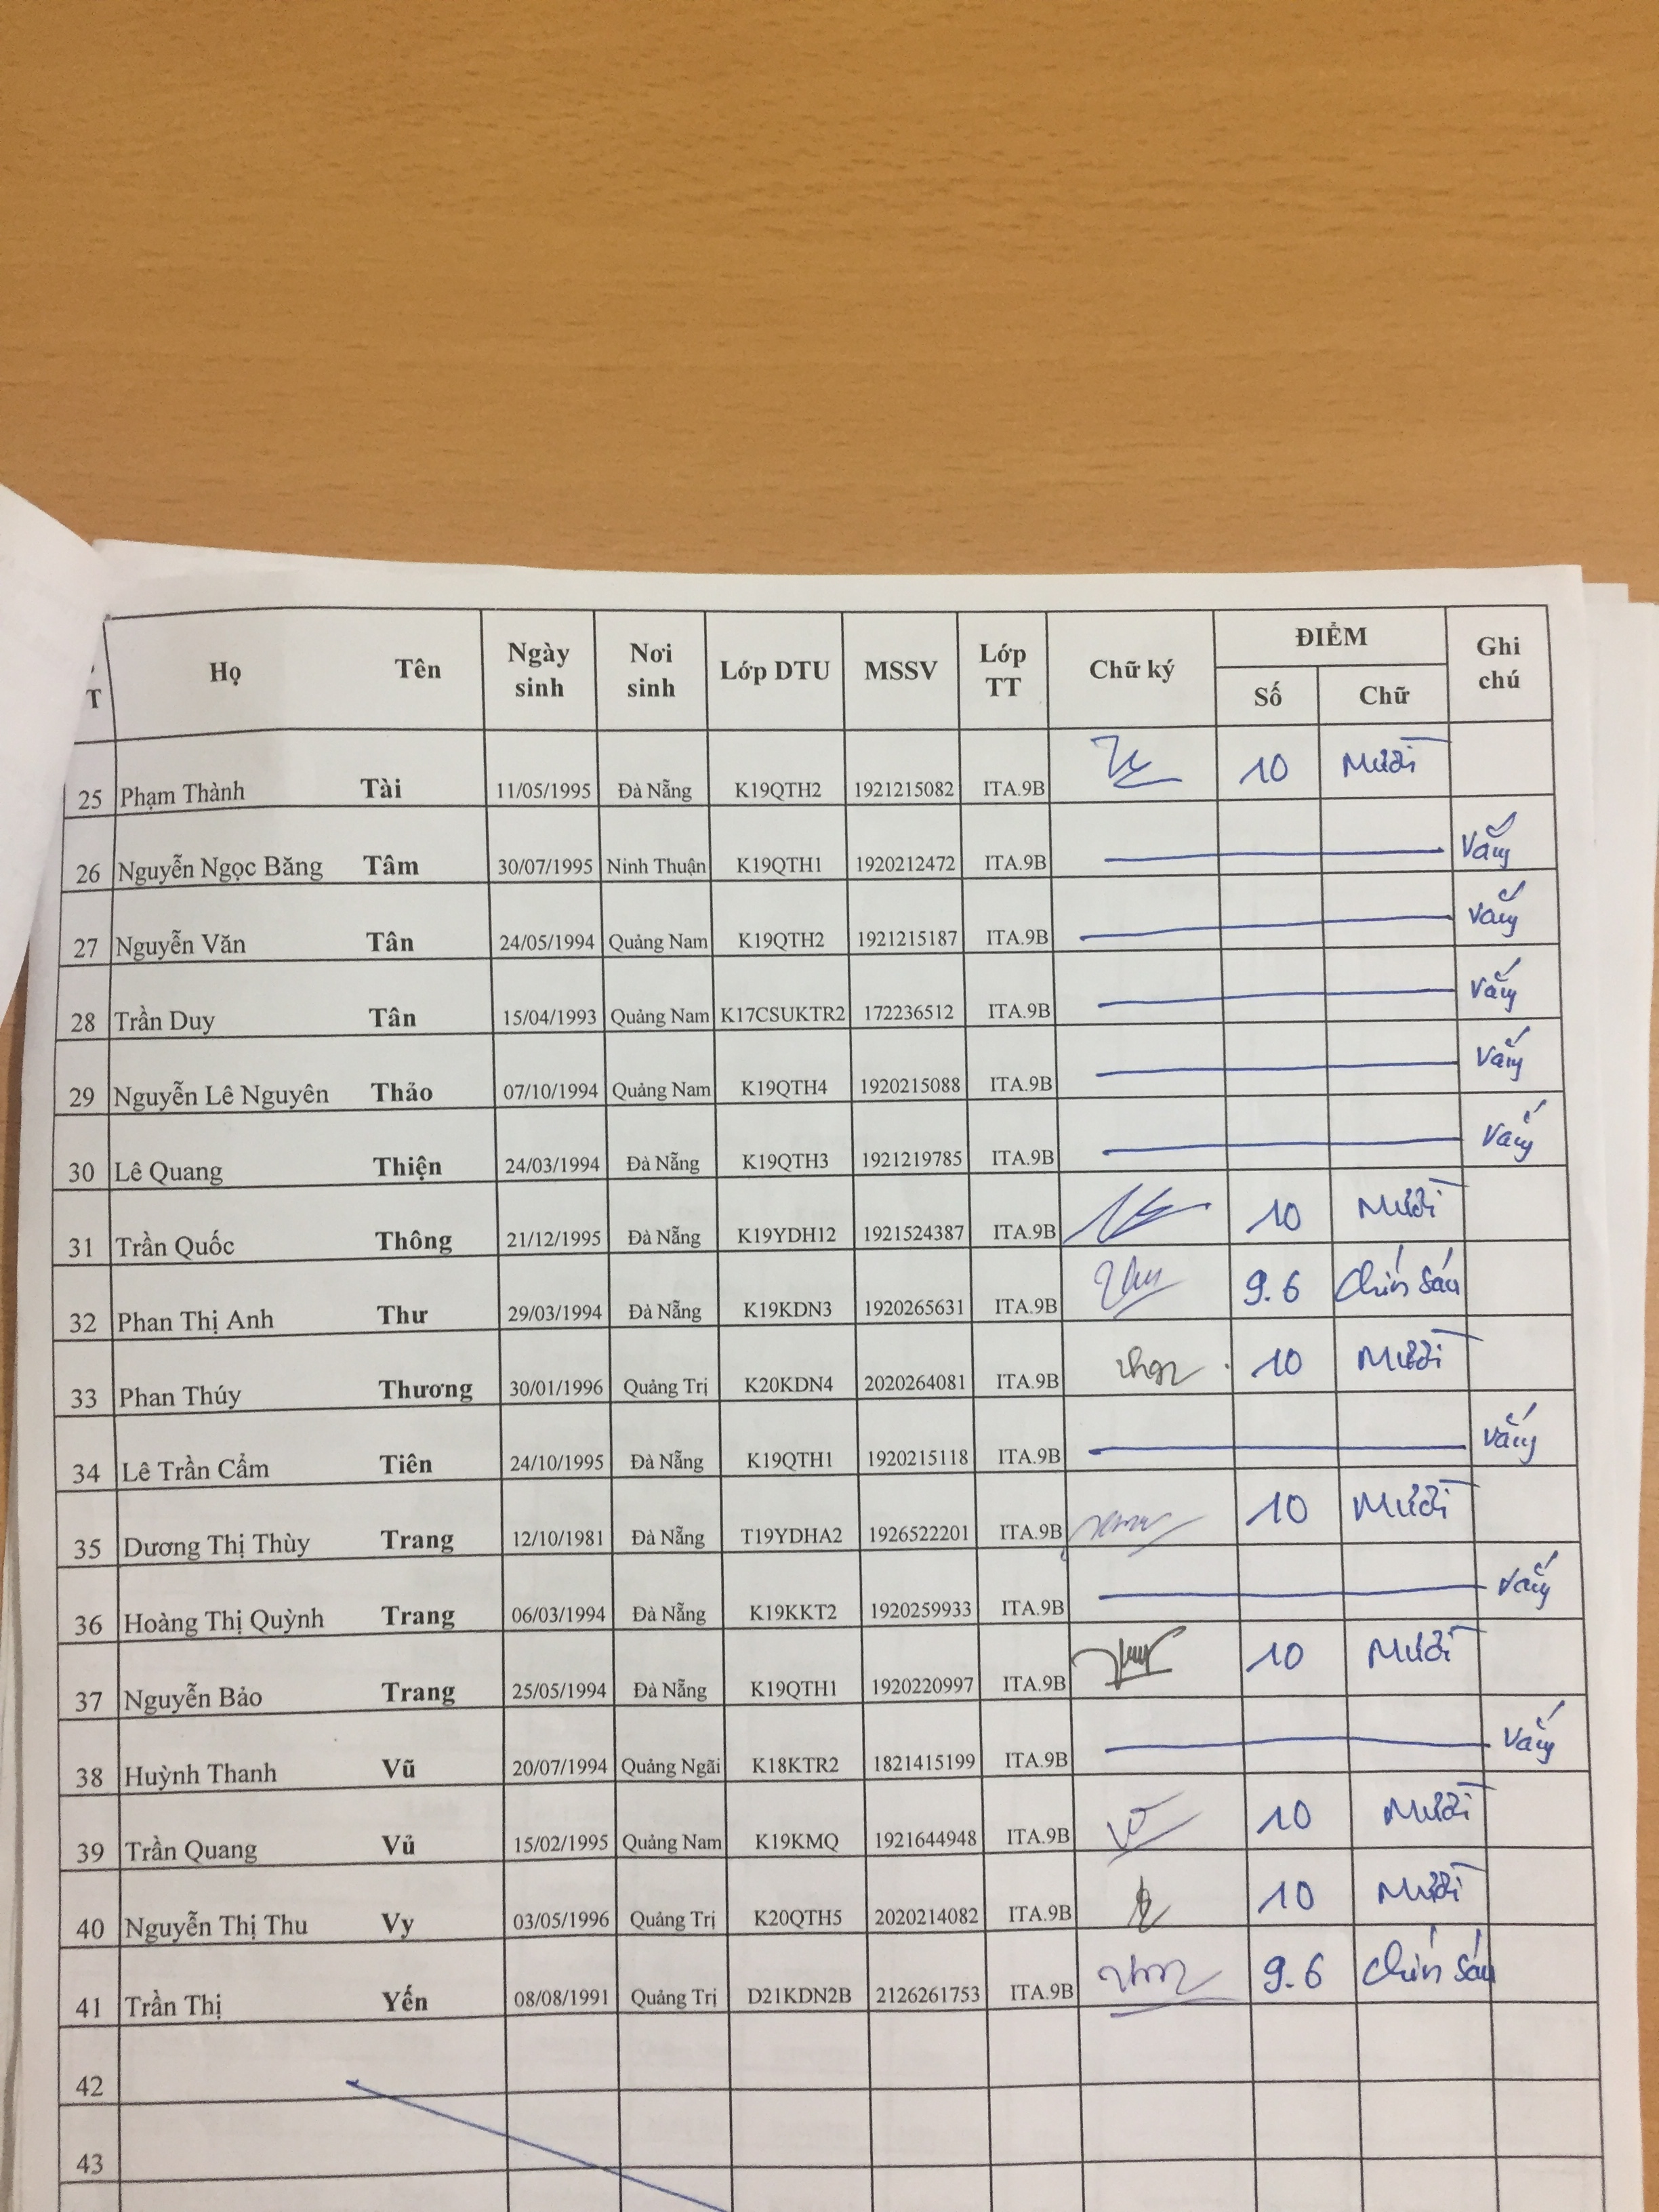 T Họ Tên Ngày sinh Nơi sinh Lớp DTU MSSV Lớp TT Chữ ký ĐIỂM Ghi chú
Số Chữ
25 Phạm Thành Tài 11/05/1995 Đà Nẵng K19QTH2 1921215082 ITA.9B 10 Mười
26 Nguyễn Ngọc Băng Tâm 30/07/1995 Ninh Thuận K19QTH1 1920212472 ITA.9B Vắng
27 Nguyễn Văn Tân 24/05/1994 Quảng Nam K19QTH2 1921215187 ITA.9B Vắng
28 Trần Duy Tân 15/04/1993 Quảng Nam K17CSUKTR2 172236512 ITA.9B Vắng
29 Nguyễn Lê Nguyên Thảo 07/10/1994 Quảng Nam K19QTH4 1920215088 ITA.9B Vắng
30 Lê Quang Thiện 24/03/1994 Đà Nẵng K19QTH3 1921219785 ITA.9B Vắng
31 Trần Quốc Thông 21/12/1995 Đà Nẵng K19YDH12 1921524387 ITA.9B 10 Mười
32 Phan Thị Anh Thư 29/03/1994 Đà Nẵng K19KDN3 1920265631 ITA.9B 9.6 Chín Sáu
33 Phan Thúy Thương 30/01/1996 Quảng Trị K20KDN4 2020264081 ITA.9B 10 Mười
34 Lê Trần Cẩm Tiên 24/10/1995 Đà Nẵng K19QTH1 1920215118 ITA.9B Vắng
35 Dương Thị Thùy Trang 12/10/1981 Đà Nẵng T19YDHA2 1926522201 ITA.9B 10 Mười
36 Hoàng Thị Quỳnh Trang 06/03/1994 Đà Nẵng K19KKT2 1920259933 ITA.9B Vắng
37 Nguyễn Bảo Trang 25/05/1994 Đà Nẵng K19QTH1 1920220997 ITA.9B 10 Mười
38 Huỳnh Thanh Vũ 20/07/1994 Quảng Ngãi K18KTR2 1821415199 ITA.9B Vắng
39 Trần Quang Vủ 15/02/1995 Quảng Nam K19KMQ 1921644948 ITA.9B 10 Mười
40 Nguyễn Thị Thu Vy 03/05/1996 Quảng Trị K20QTH5 2020214082 ITA.9B 10 Mười
41 Trần Thị Yến 08/08/1991 Quảng Trị D21KDN2B 2126261753 ITA.9B 9.6 Chín Sáu
42
43